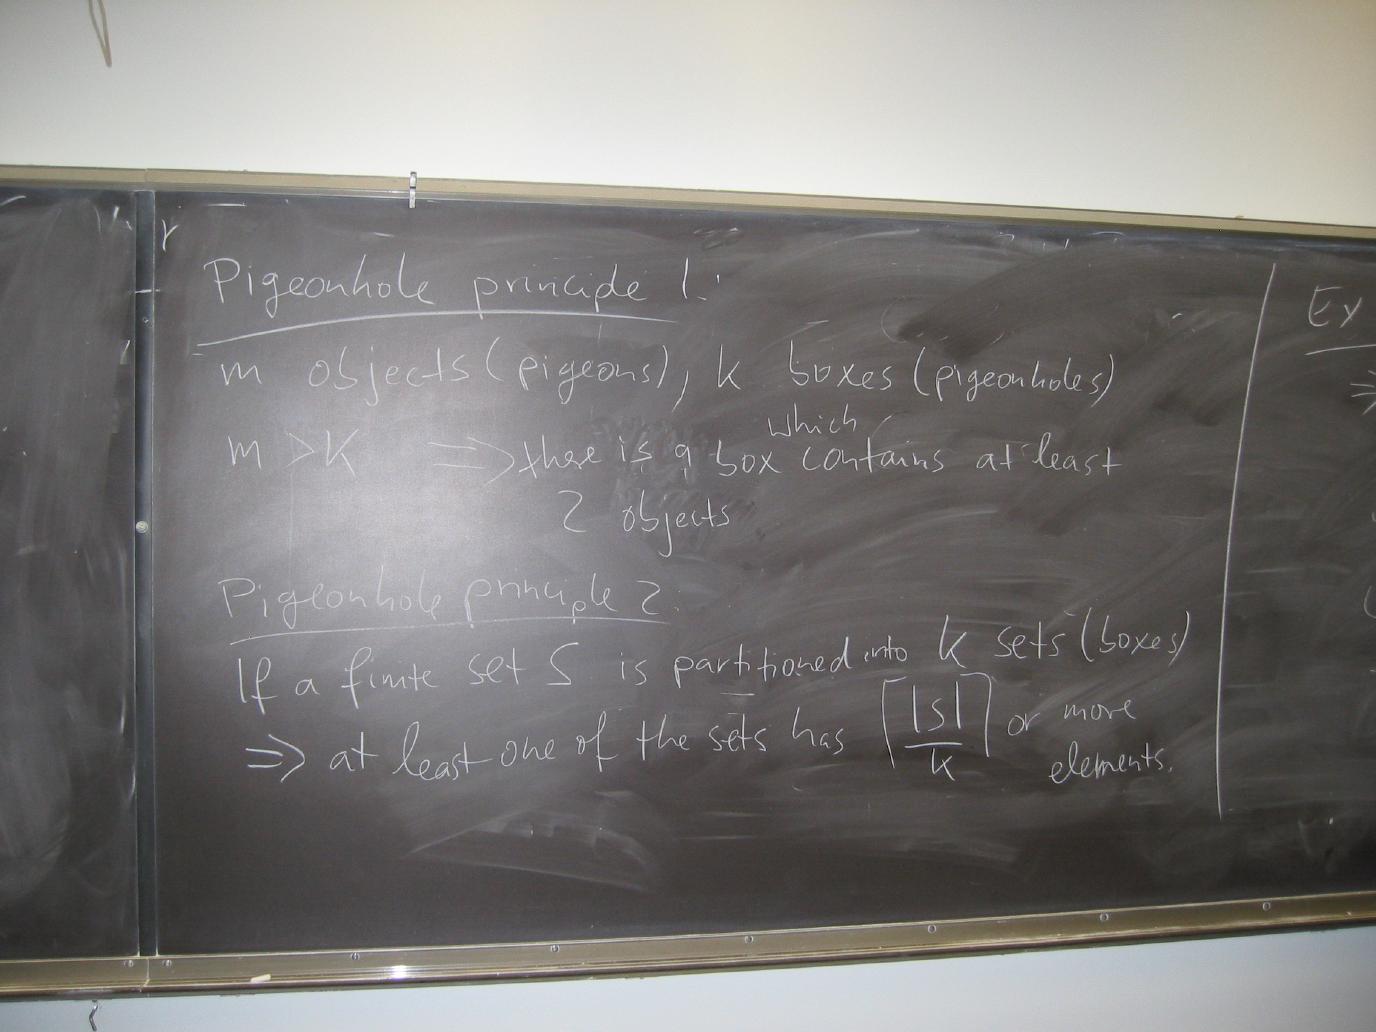 Pigeonhole principle 1:
m objects (pigeons), k boxes (pigeonholes)
m > K ⇒ there is a box which contains at least
2 objects
Pigeonhole principle 2.
If a finite set S is partitioned into k sets (boxes)
⇒ at least one of the sets has ⌈|S|/k⌉ or more
elements.
Ex
⇒